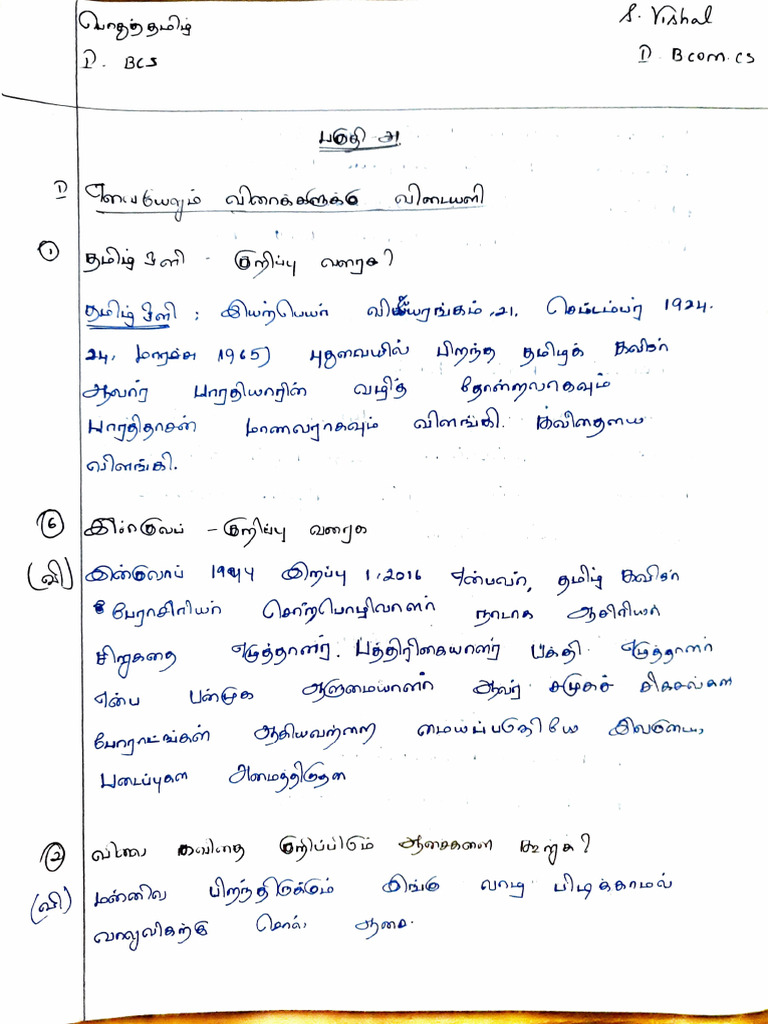 பொதுத்தமிழ்
S. Vishal
I. BCS
I. Bcom.cs
பகுதி - அ.
I எவையேனும் வினாக்களுக்கு விடையளி
① தமிழ் ஒளி - குறிப்பு வரைக?
தமிழ் ஒளி : இயற்பெயர் விஜயரங்கம் .21, செப்டம்பர் 1924.
24, மார்ச்சு 1965) புதுவையில் பிறந்த தமிழ்க் கவிஞர்
ஆவார் பாரதியாரின் வழித் தோன்றலாகவும்
பாரதிதாசன் மாணவராகவும் விளங்கி.
விளங்கி.
⑥ இன்குலப் - குறிப்பு வரைக
(வி) இன்குலாப் 1944 இறப்பு 1, 2016 என்பவர், தமிழ் கவிஞர்
பேராசிரியர் சொற்பொழிவாளர் நாடாக ஆசிரியர்
சிறுகதை எழுத்தாளர். பத்திரிகையாளர் பக்தி எழுத்தாளர்
என்ப பன்முக ஆளுமையாளர் ஆவர் சமுகச் சிக்சல்கள
போராட்டங்கள் ஆகியவற்றை மைய்ப்பகுதியே
படைப்புகள அமைத்திருதன
② கவிதை குறிப்பிடும் ஆசைகளை கூறுக?
(வி) மன்னில பிறந்திடுக்கும் இங்கு வாழ பிடிக்காமல்
ஆசை.